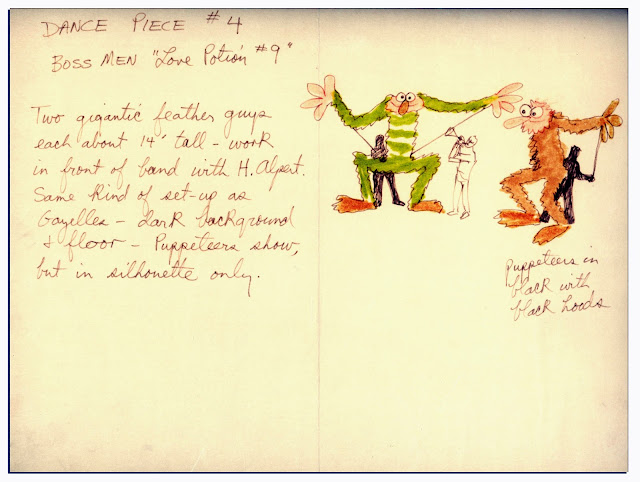 DANCE PIECE #4
BOSS MEN "Love Potion #9"
Two gigantic feather guys
each about 14' tall - work
in front of band with H. Alpert.
Same kind of set-up as
Gazelles - dark background
& floor - Puppeteers show,
but in silhouette only.
Puppeteers in
black with
black hoods